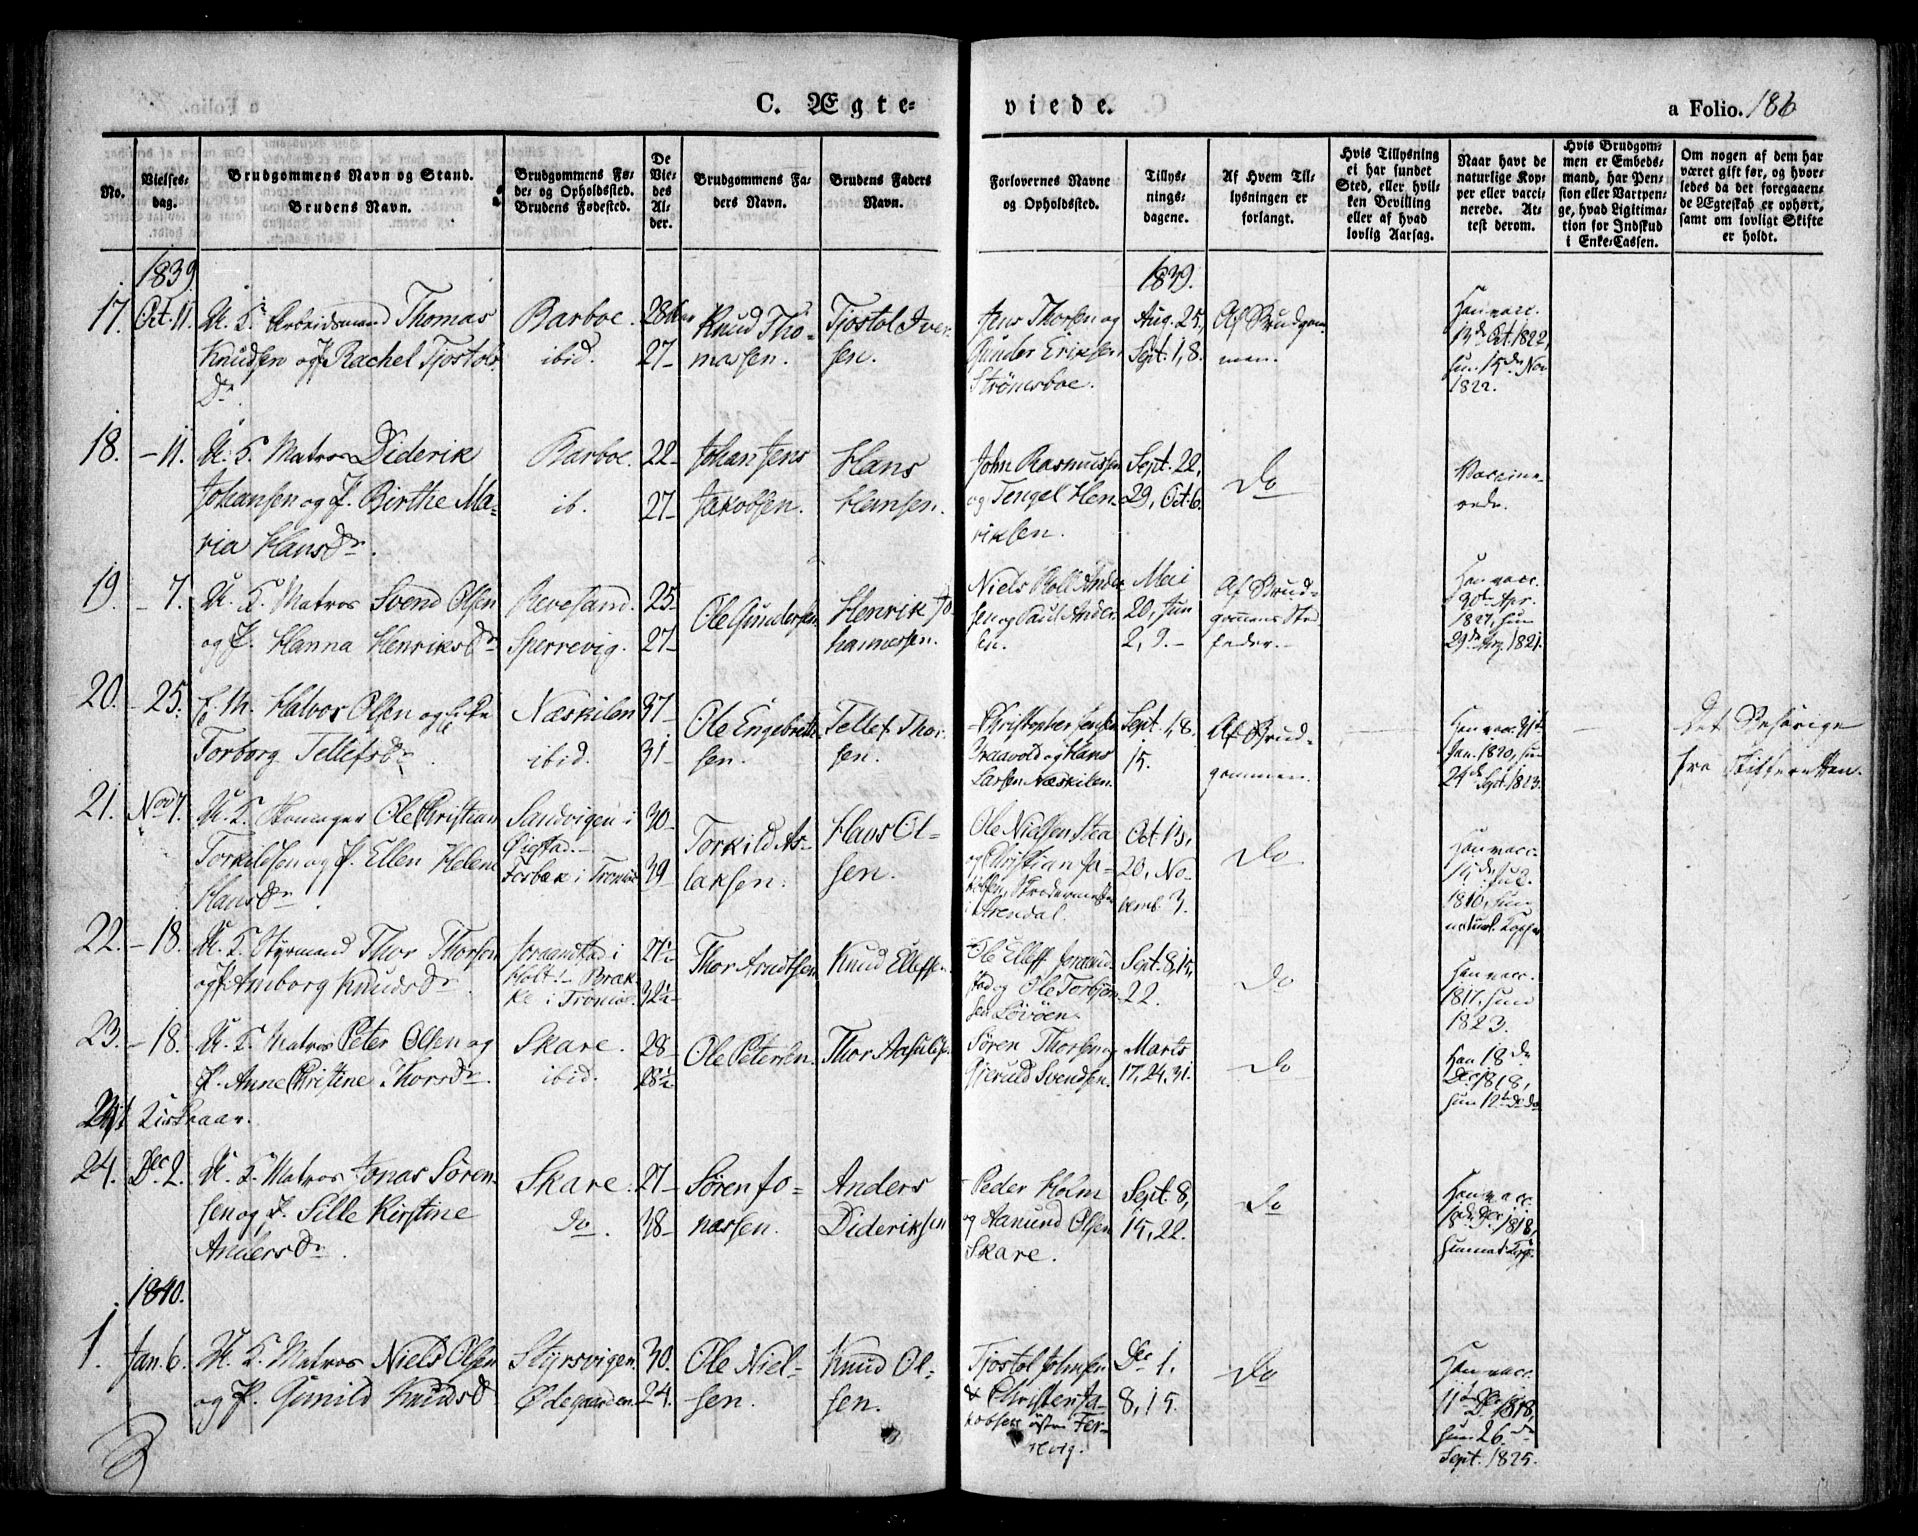 C. Ægte-
viede.
a Folio. 186
No.
Vielses-
dag.
Brudgommens Navn og Stand.
Brudens Navn.
Brudgommens Fø-
de- og Opholdssted.
Brudens Fødested.
De
Vie-
des
Al-
der.
Brudgommens Fa-
ders Navn.
Brudens Faders
Navn.
Forlovernes Navne
og Opholdssted.
Tillys-
nings-
dagene.
Af Hvem Til-
lysningen er
forlangt.
Hvis Tillysning
ei har fundet
Sted, eller hvil-
ken Bevilling
eller af hvad
lovlig Aarsag.
Naar havt de
naturlige Kop-
per eller vacci-
nerede. At-
test derom.
Hvis Brudgom-
men er Embeds-
mand, har Pen-
sion eller Vartpen-
ge, hvad Legitima-
tion for Indskud
i Enke-Cassen.
Om nogen af dem har
været gift før, og hvor-
ledes da det foregaaen-
de Ægteskab er ophørt,
samt om lovligt Skifte
er holdt.
1839.
1839.
17. Oct. 11. U. K. Arbeidsmand Thomas
Knudsen og P. Rachel Tjostols
Dr.
Barboe.
ibid.
28
27
Knud Tho-
massen.
Tjostol Iver-
sen.
Jens Thorsen og
Gunder Eriksen
Strømsboe.
Aug. 25,
Sept. 1, 8.
Af Brudgom-
men.
Han vacc.
13de Oct. 1822,
hun 15de Nov
1822.
18. – 11. U. K. Matros Diderik
Johansen og P. Birthe Ma-
ria Hans Dr.
Barboe.
ib.
22
27
Johan Jens
Jakobsen.
Hans
Hansen.
John Rasmussen
og Tengel Hen-
riksen.
Sept. 22,
29, Oct. 6.
Do
Vaccine-
rede.
19. – 7. U. K. Matros Svend Olsen
og P. Hanna Henriks Dr
Revesand.
Sperrevig.
25
27
Ole Gundersen.
Henrik Jo-
hannessen.
Niels Ander-
sen og Paul Ander-
sen.
Mai
20, Jun
2, 9. –
Af Brud-
gommens Sted-
fader. –
Han vacc.
Apr.
1821, hun
29de 1821.
20. – 25. Halvor Olsen og
Torborg Tellefs Dr.
Næskilen
ibid.
37
31
Ole Engebret-
sen.
Tellef Thor-
sen.
Christopher
og Hans
Larsen Næskilen.
Sept. 1, 8.
15.
Af Brud-
gommen.
Han vacc.
Jan. 1820, hun
24de Sept. 1823.
Det Behørige
fra Skifteretten.
21. Nov 7. U. K. Ole Christian
Torkildsen og P. Ellen Helene
Hans Dr.
Sandvigen i
Øiestad. –
Torbæk i Tromøe
30
39
Torkild As-
laksen.
Hans Ol-
sen.
Ole Nielsen
og Christian Ja-
kobsen,
i Arendal.
Oct. 13,
20, No-
vemb. 3.
Do
Han vacc.
15de Jul.
1810, hun
naturl. Kopper
22. – 18. U. K. Styrmand Thor Thorsen
og P. Amborg Knuds Dr.
i
Holt. – Bræk-
ke i Tromøe.
Thor Arndtsen.
Knud Ellefsen.
Ole Ellefs
og Ole Torbjørn-
sen Løvøen.
Sept. 8, 15,
22.
Do
Han vacc.
1817, hun
1823.
23. – 18. U. K. Matros Peter Olsen og
P. Anne Christine Thors Dr.
Skare.
ibid.
28
28½
Ole Petersen.
Thor
Søren Thorsen og
Gjeruld Svendsen.
Marts
17, 24, 31.
Do
Han 18de
Dec. 1818,
hun 12te Do
24. Dec. 2. U. K. Matros Jonas Søren-
sen og P. Sille Kirstine
Anders Dr.
Skare.
Do.
27
38
Søren Jo-
nassen.
Anders
Dideriksen
Peder Holm
og Aanund Olsen
Skare.
Sept. 8,
15, 22.
Do
Han vacc.
18de 1818,
hun nat.
1840.
1. Jan. 6. U. K. Matros Niels Olsen
og P. Gunild Knuds Dr
Styrsvigen.
Ødegaarden.
30.
24.
Ole Niel-
sen.
Knud Ol-
sen.
Tjostol Johnsen
& Christen Ja-
kobsen Fer-
vig.
Dec 1.
8, 15.
Do
Han vacc.
11te Dec. 1818,
hun 26de
Sept. 1825.